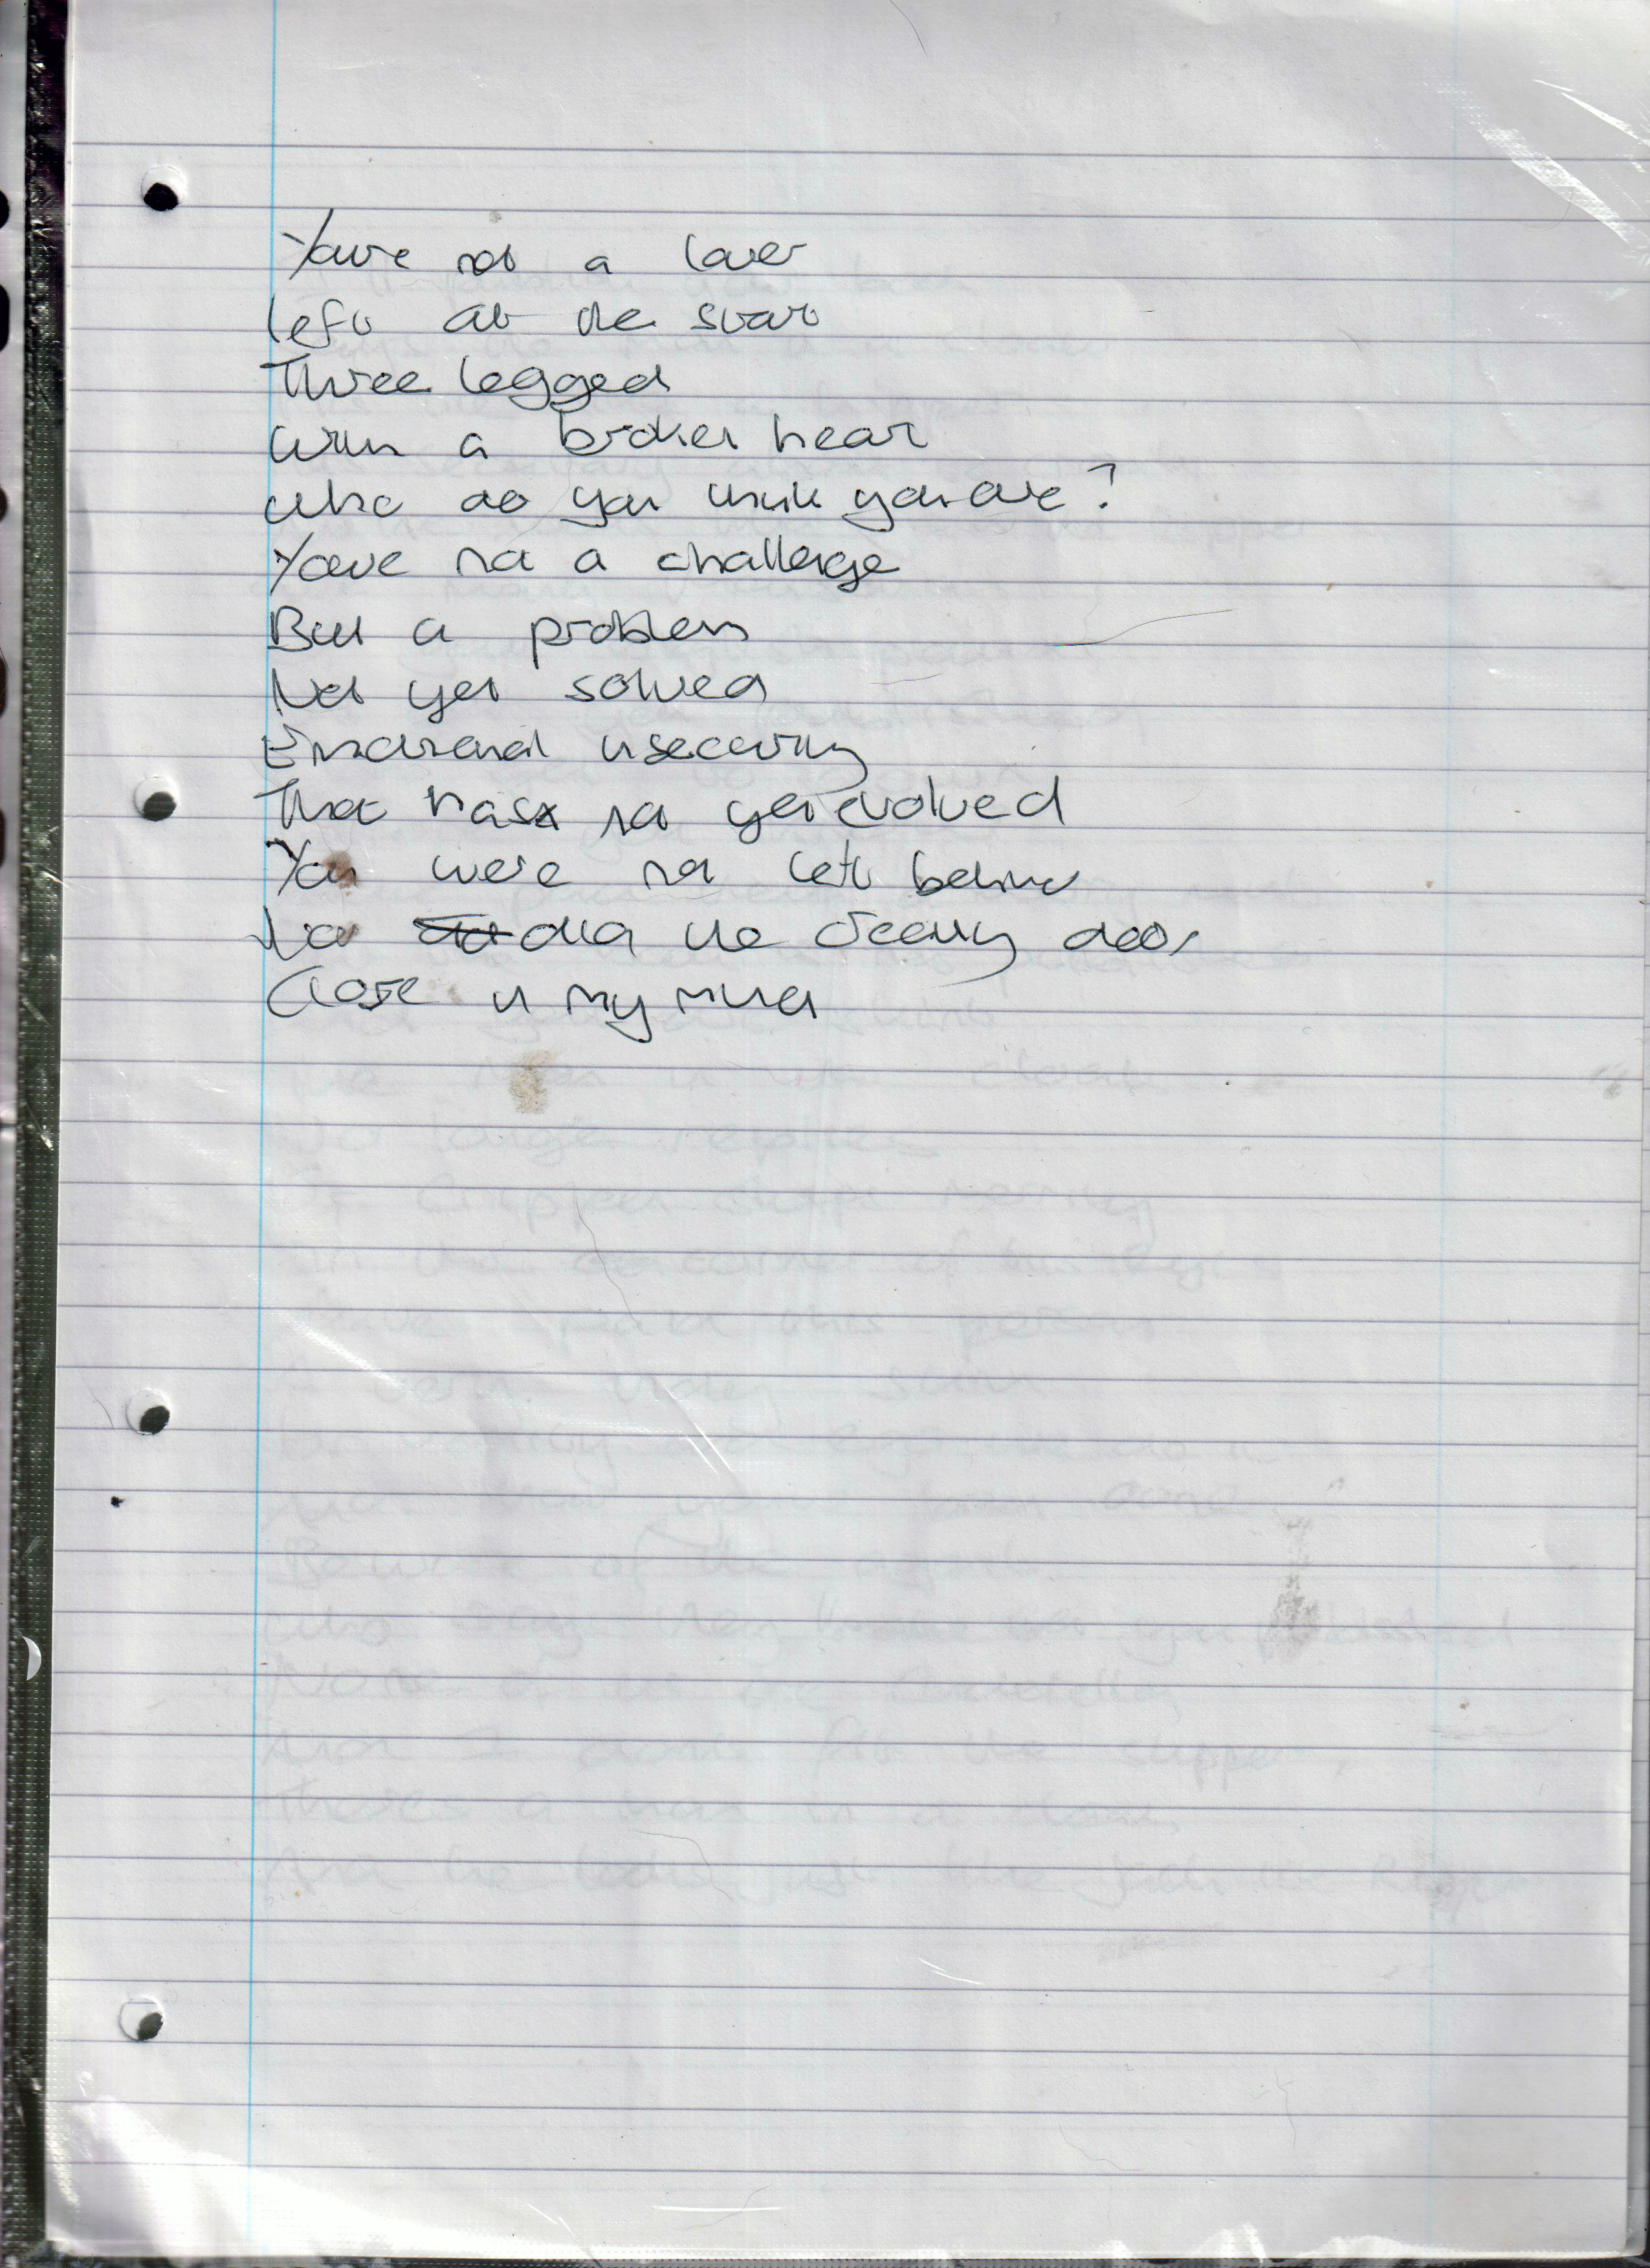 Youre not a lover
left at the start
Three legged
With a broken heart
Who do you think you are?
Youre not a challenge
But a problem
Not yet solved
Emotional insecurity
That has not yet evolved
You were not left behind
Nor did the door
Close in my mind